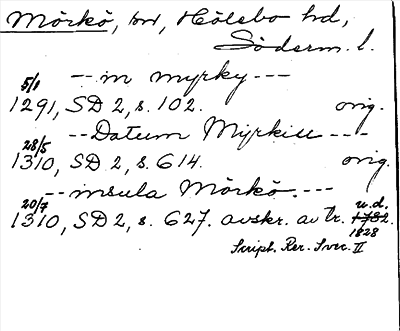 Mörkö, sn, Hölebo hd,
Söderm. l.
--- in myrky ---
5/1
1291, SD 2, s. 102. orig.
--- Datum Myrkiu ---
28/5
1310, SD 2, s. 614. orig.
--- insula Mörkö. ---
20/7 u.d.
1310, SD 2, s. 627. avskr. av tr. 1782.
1828
Script. Rer. Svec. II